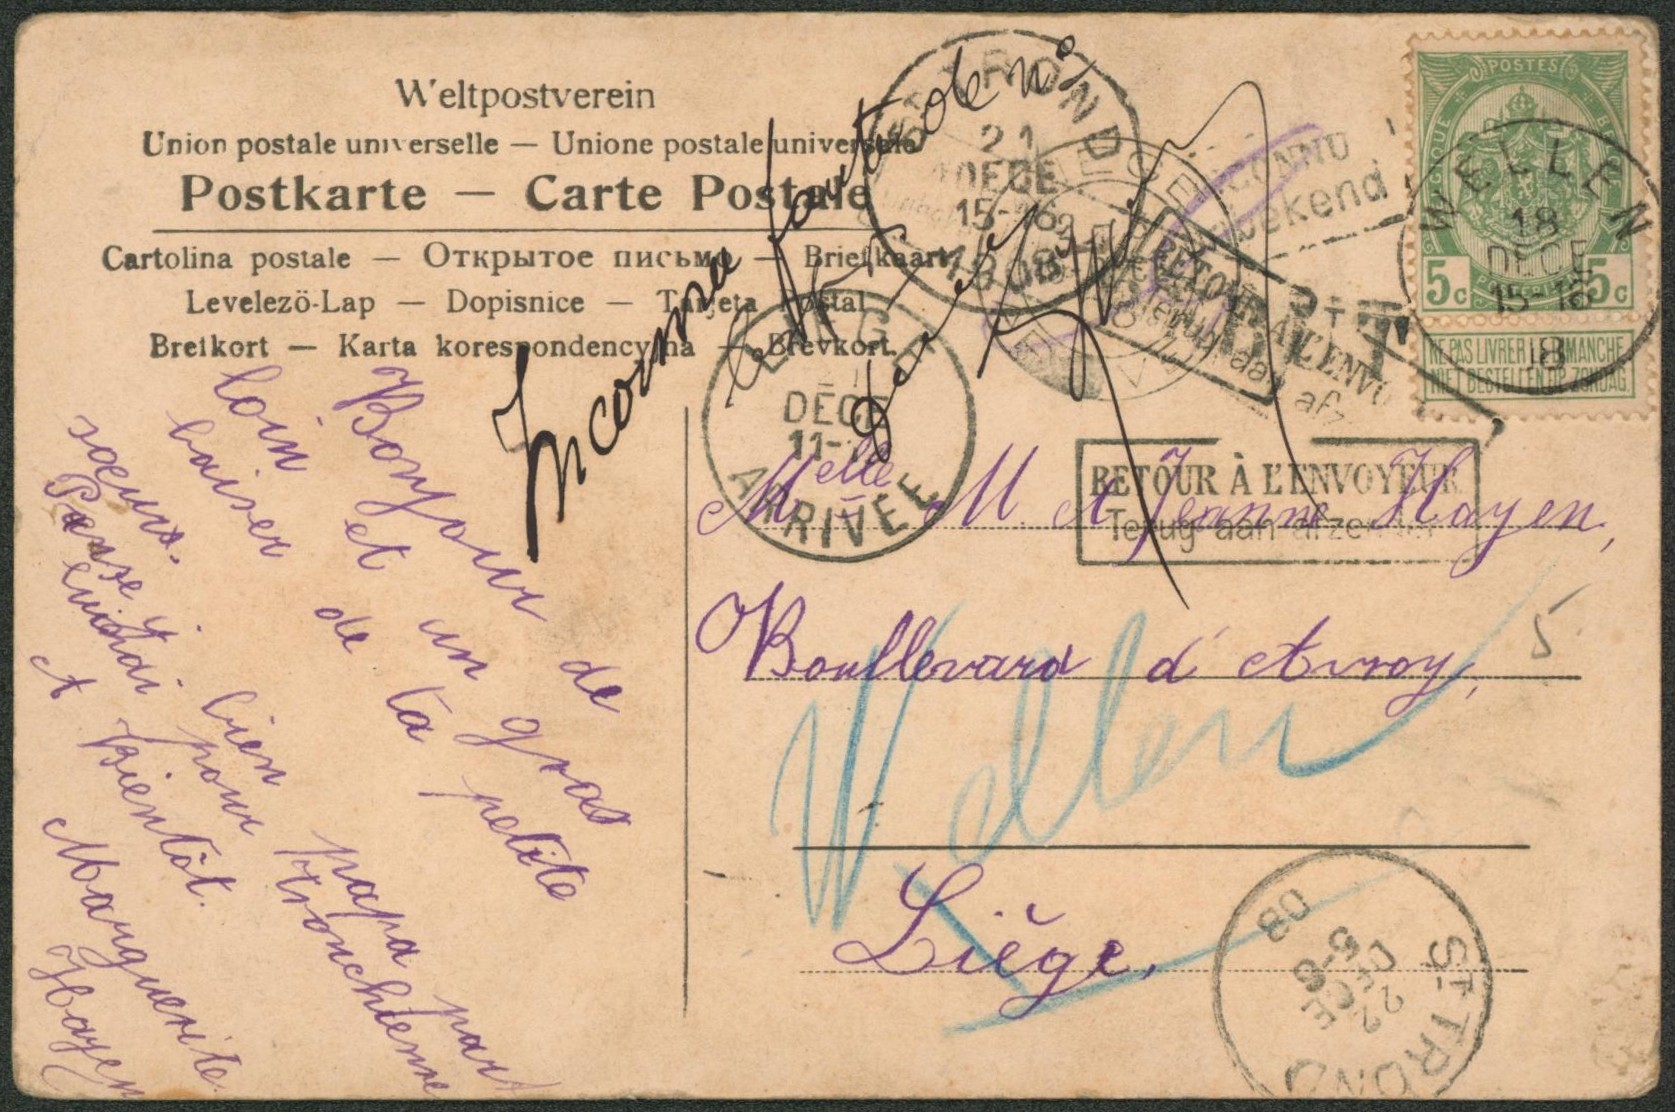 Weltpostverein
Union postale universelle — Unione postale universale
Postkarte — Carte Postale
Cartolina postale — Открытое письмо — Briefkaart
Levelezö-Lap — Dopisnice — Tarjeta Postal
Brefkort — Karta korespondencyjna — Brevkort.
Inconnu faute de n°
ST TROND
21
DECE
15-16
1908
LIEGE
DÉC
11-
ARRIVÉE
INCONNU
Onbekend
RETOUR A L'ENVO
Terug aan afz
T
RETOUR À L'ENVOYEUR
Terug aan afzender
POSTES
BELGIQUE
5c 5c
NE PAS LIVRER LE DIMANCHE
NIET BESTELLEN OP ZONDAG
WELLEN
18
DECE
15-16
08
Melle M et Jeanne Hayen,
Boullevard d'Avroy,
Liége,
Wellen
5
ST TROND
22
DECE
6-8
08
Bonjour de
loin et un gros
baiser de ta petite
soeur.
Papa part
lundi pour Tronchienne
A Bientôt.
Marguerite
Hayen